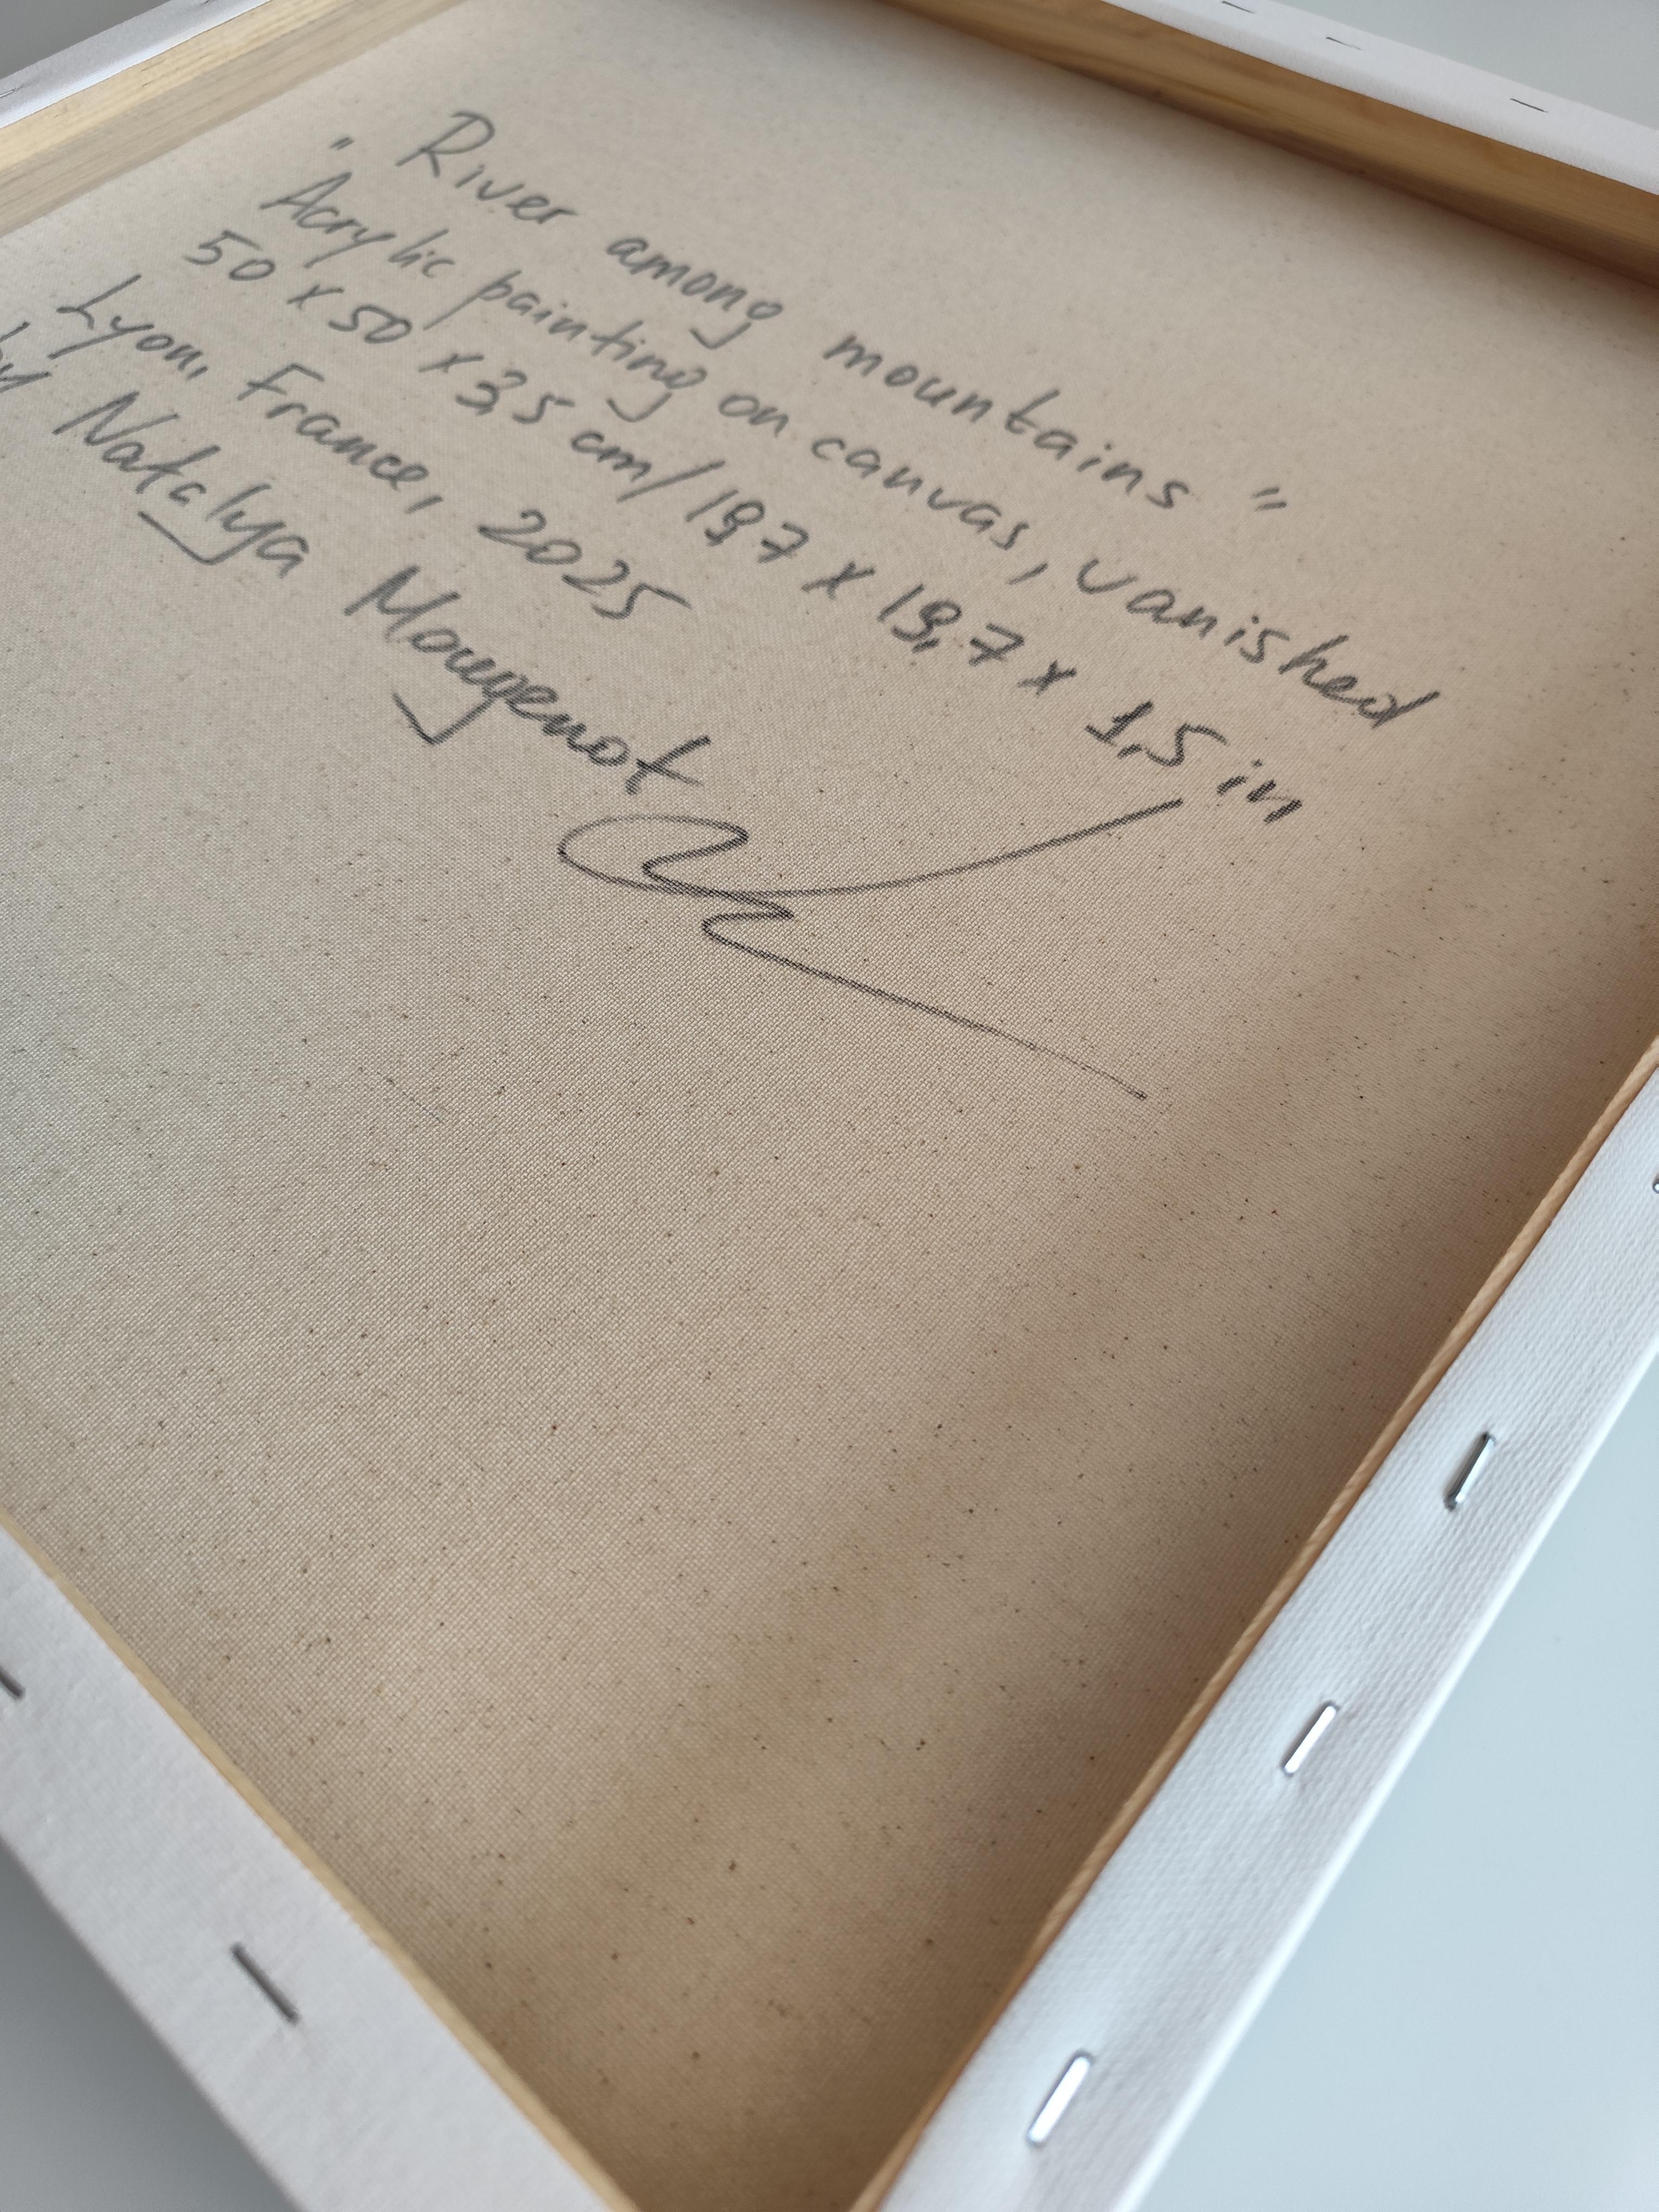 "River among mountains"
Acrylic painting on canvas, vanished
50 x 50 x 3,5 cm/19,7 x 19,7 x 1,5 in
Lyon, France, 2025
by Natalya Mougenot